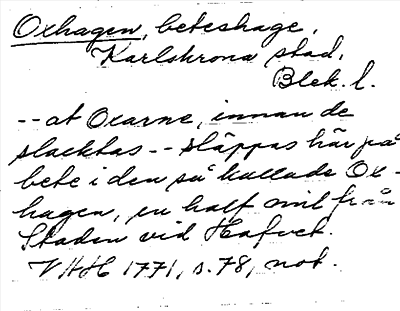 Oxhagen, beteshage,
Karlskrona stad,
Blek. l.
-- at Oxarne, innan de
slacktas -- släppas här på
bete i den så kallade Ox-
hagen, en half mil från
Staden vid Hafvet.
VHH 1771, s. 78, not.